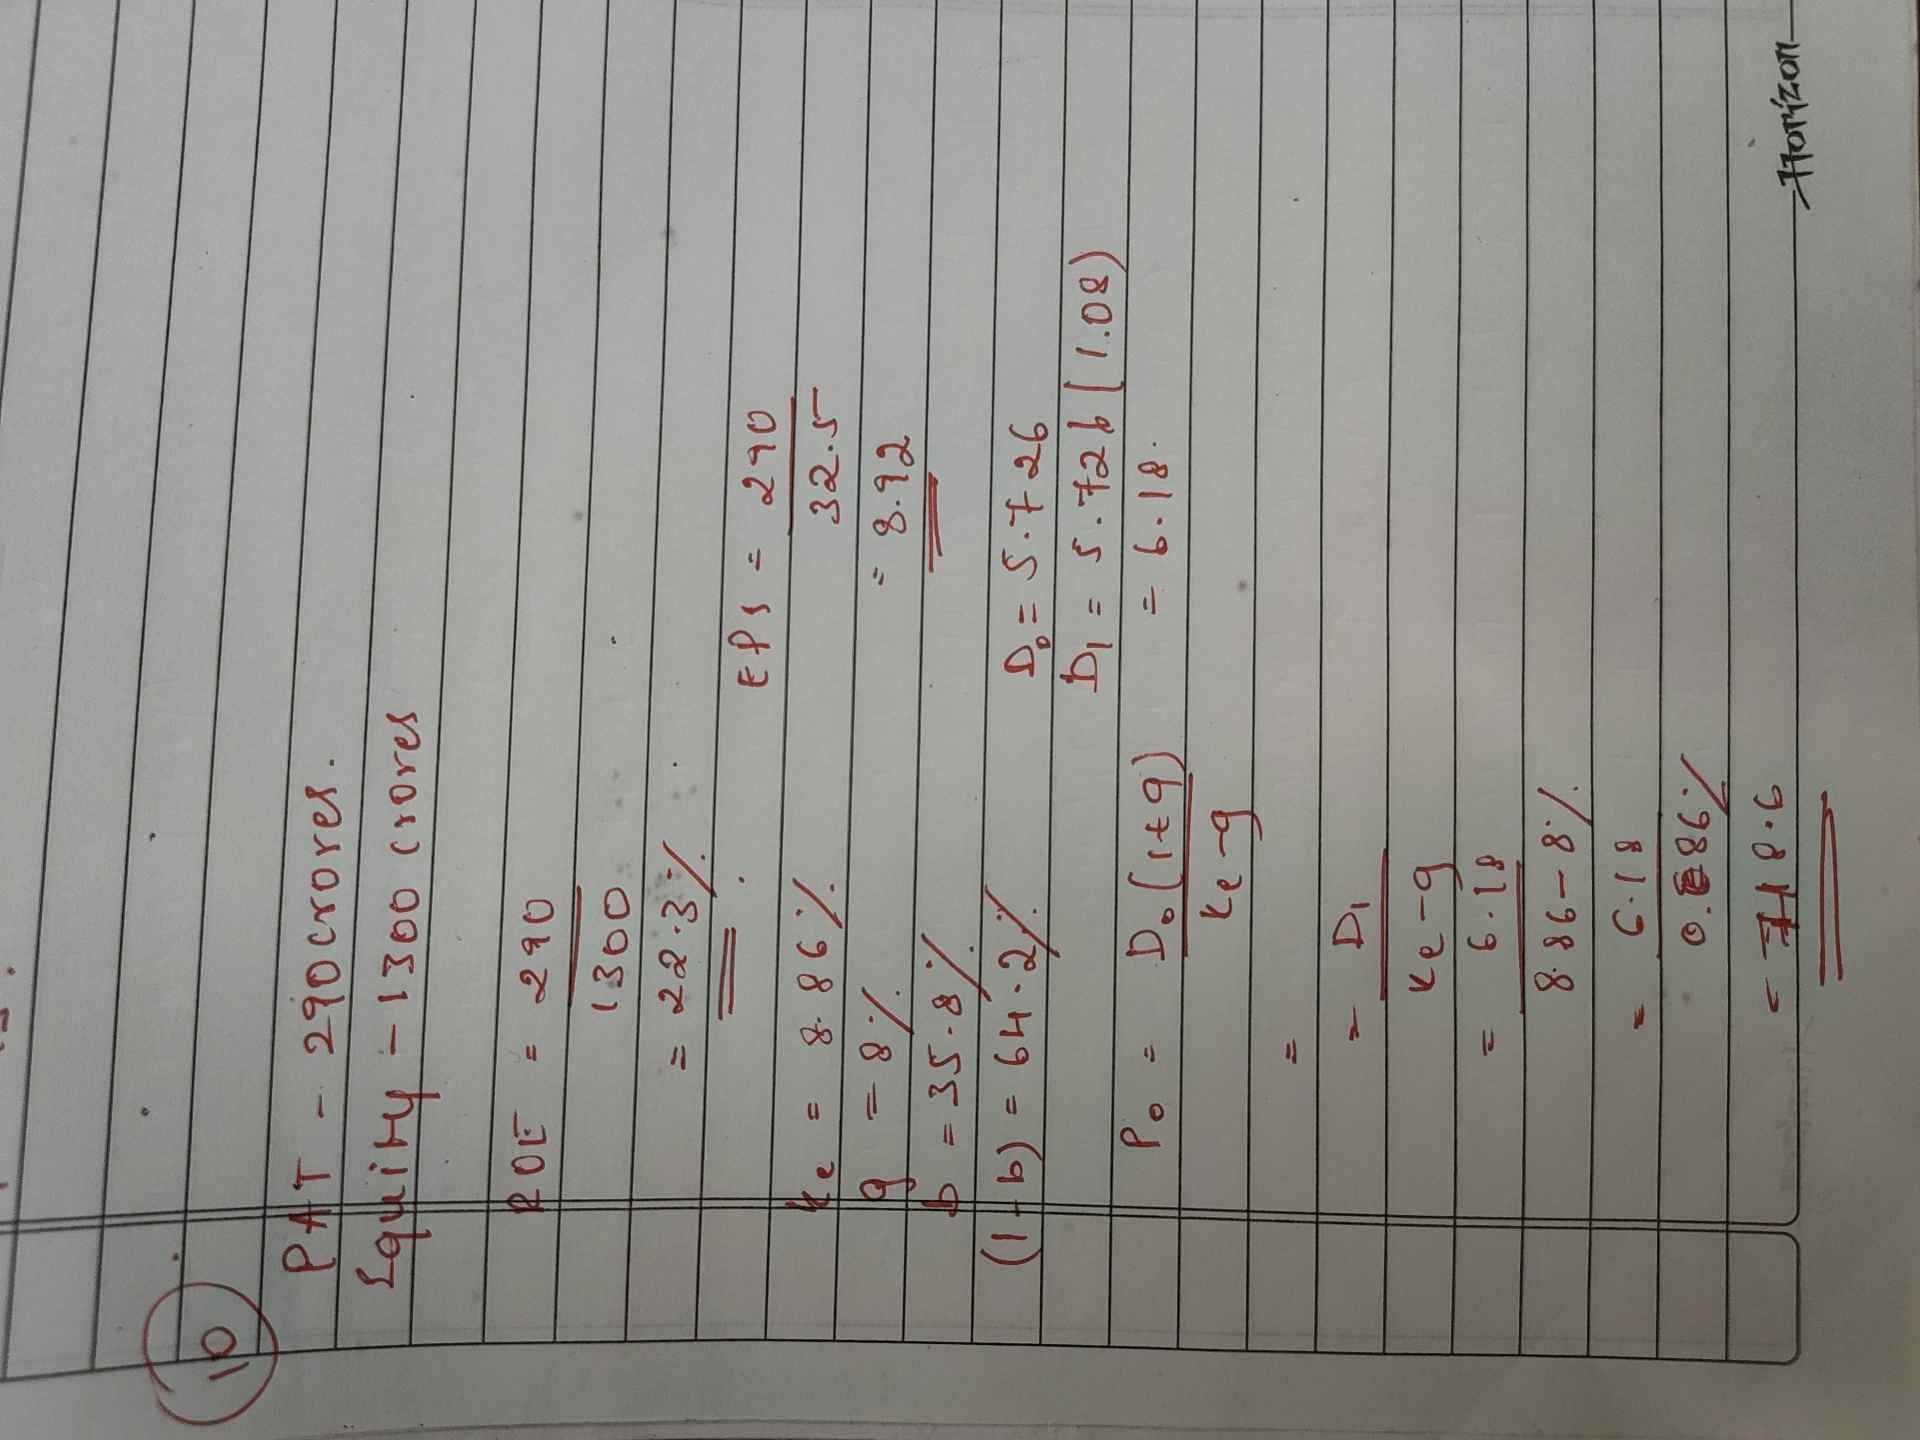 10
PAT - 290 crores.
Equity - 1300 crores
ROE = 290
1300
= 22.3%
EPS = 290
32.5
= 8.92
Ke = 8.86%
g = 8%
b = 35.8%
(1-b) = 64.2%
D0 = 5.726
D1 = 5.726 (1.08)
= 6.18.
P0 = D0 (1+g)
Ke-g
=
= D1
Ke-g
= 6.18
8.86-8%
= 6.18
0.86%
= 718.6
Horizon